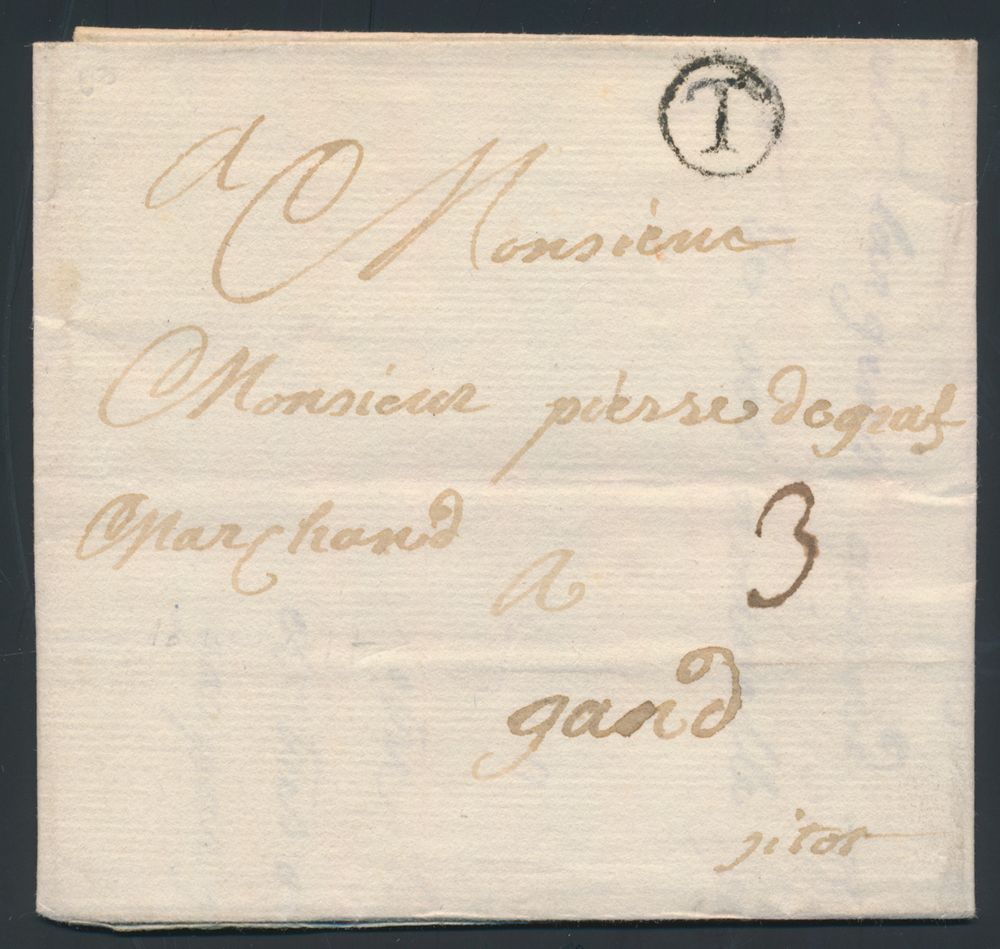 T
A Monsieur
Monsieur pierre degraf
Marchand
3
A
gand
citos